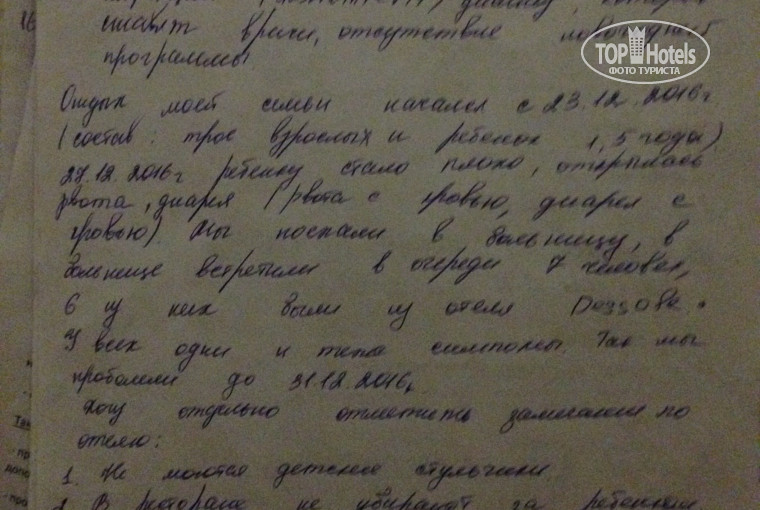 16
ставят врачи, отсутствие новогодней
программы.
TOP Hotels
ФОТО ТУРИСТА
Отдых моей семьи начался с 23.12.2016г
(состав: трое взрослых и ребенок 1,5 года)
27.12.2016г ребенку стало плохо, открылась
рвота, диарея (рвота с кровью, диарея с
кровью) Мы поехали в больницу, в
больнице встретили в очереди 7 человек,
6 из них были из отеля
У всех одни и теже симптомы. Так мы
проболели до 31.12.2016г.
Хочу отдельно отметить замечания по
отелю:
1. Не моются детские стульчики
В ресторане не убирают за ребенком